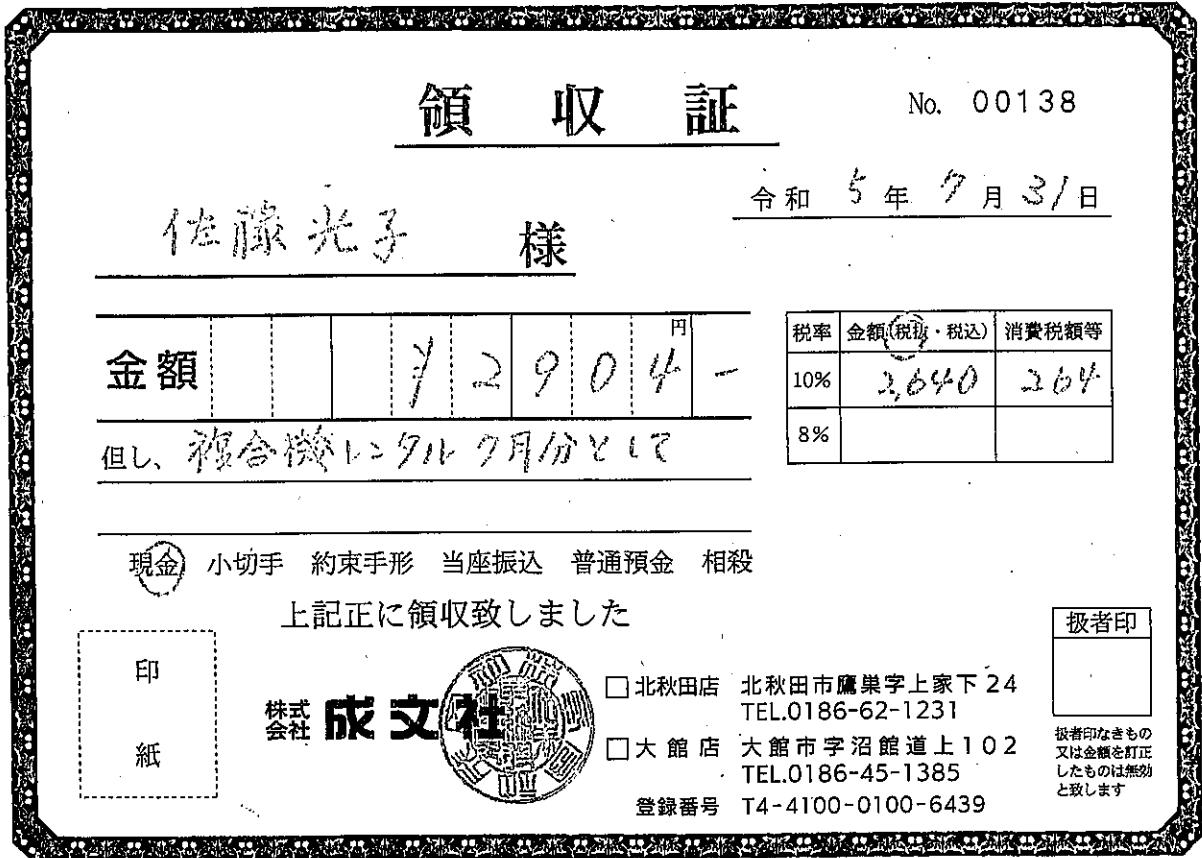 領収証
No. 00138
令和 5年 7月 31日
佐藤光子 様
金額 ¥2904円-
税率 金額(税抜・税込) 消費税額等
10% 2,640 264
8%
但し、複合機レンタル7月分として
現金 小切手 約束手形 当座振込 普通預金 相殺
上記正に領収致しました
印紙
株式会社 成文社
□北秋田店 北秋田市鷹巣字上家下24
TEL.0186-62-1231
□大館店 大館市字沼館道上102
TEL.0186-45-1385
登録番号 T4-4100-0100-6439
扱者印
扱者印なきもの
又は金額を訂正
したものは無効
と致します